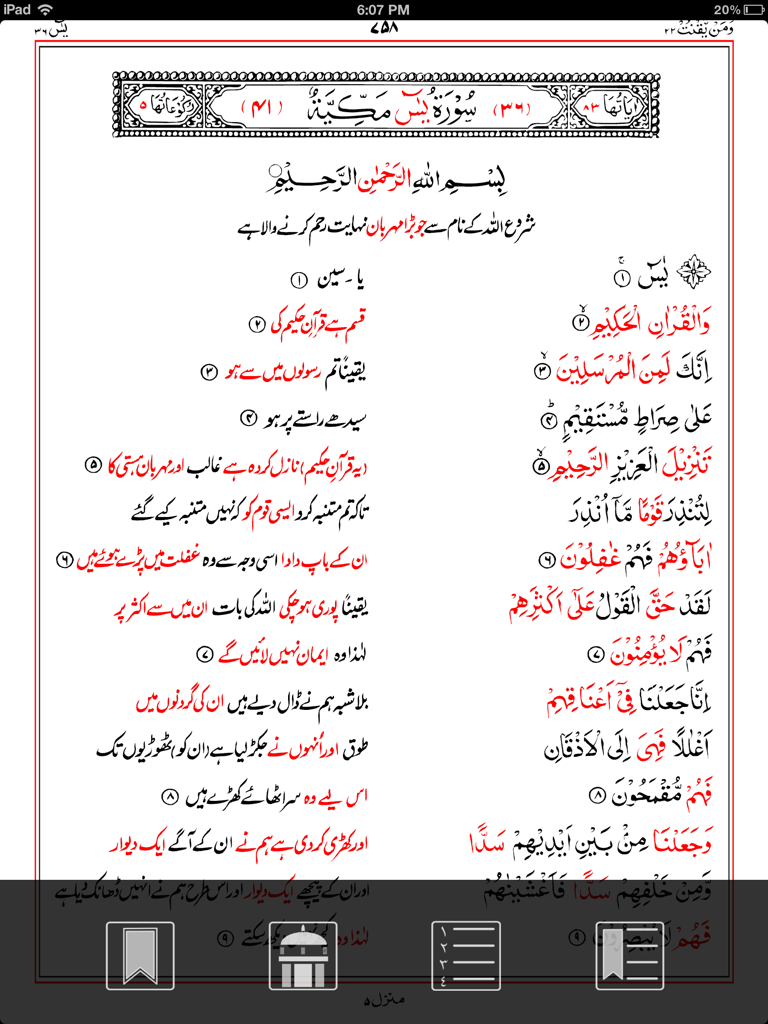 iPad 6:07 PM 20%
وَمَنْ یَّقْنُتْ ۲۲ ۷۵۸ یٰسٓ ۳۶
اٰیَاتُهَا ۸۳ (۳۶) سُوْرَةُ یٰسٓ مَكِّیَّةٌ (۴۱) رُكُوْعَاتُهَا ۵
بِسْمِ اللّٰهِ الرَّحْمٰنِ الرَّحِیْمِ
شروع اللہ کے نام سے جو بڑا مہربان نہایت رحم کرنے والا ہے
یٰسٓ ۚ ۱ یا۔سین ۱
وَالْقُرْاٰنِ الْحَكِیْمِ ۙ ۲ قسم ہے قرآنِ حکیم کی ۲
اِنَّكَ لَمِنَ الْمُرْسَلِیْنَ ۙ ۳ یقیناً تم رسولوں میں سے ہو ۳
عَلٰی صِرَاطٍ مُّسْتَقِیْمٍ ؕ ۴ سیدھے راستے پر ہو ۴
تَنْزِیْلَ الْعَزِیْزِ الرَّحِیْمِ ۙ ۵ (یہ قرآنِ حکیم) نازل کردہ ہے غالب اور مہربان ہستی کا ۵
لِتُنْذِرَ قَوْمًا مَّاۤ اُنْذِرَ تاکہ تم متنبہ کرو ایسی قوم کو کہ نہیں متنبہ کیے گئے
اٰبَآؤُهُمْ فَهُمْ غٰفِلُوْنَ ۶ ان کے باپ دادا اسی وجہ سے وہ غفلت میں پڑے ہوئے ہیں ۶
لَقَدْ حَقَّ الْقَوْلُ عَلٰۤی اَكْثَرِهِمْ یقیناً پوری ہو چکی اللہ کی بات ان میں سے اکثر پر
فَهُمْ لَا یُؤْمِنُوْنَ ۷ لہٰذا وہ ایمان نہیں لائیں گے ۷
اِنَّا جَعَلْنَا فِیْۤ اَعْنَاقِهِمْ بلاشبہ ہم نے ڈال دیے ہیں ان کی گردنوں میں
اَغْلٰلًا فَهِیَ اِلَی الْاَذْقَانِ طوق اور اُنہوں نے جکڑ لیا ہے (ان کو) ٹھوڑیوں تک
فَهُمْ مُّقْمَحُوْنَ ۸ اس لیے وہ سر اٹھائے کھڑے ہیں ۸
وَجَعَلْنَا مِنْۢ بَیْنِ اَیْدِیْهِمْ سَدًّا اور کھڑی کر دی ہے ہم نے ان کے آگے ایک دیوار
وَّمِنْ خَلْفِهِمْ سَدًّا فَاَغْشَیْنٰهُمْ اور ان کے پیچھے ایک دیوار اور اس طرح ہم نے انہیں ڈھانک دیا ہے
فَهُمْ لَا یُبْصِرُوْنَ ۹ لہٰذا وہ کچھ نہیں دیکھ سکتے ۹
۱
۲
۳
۴
منزل ۵